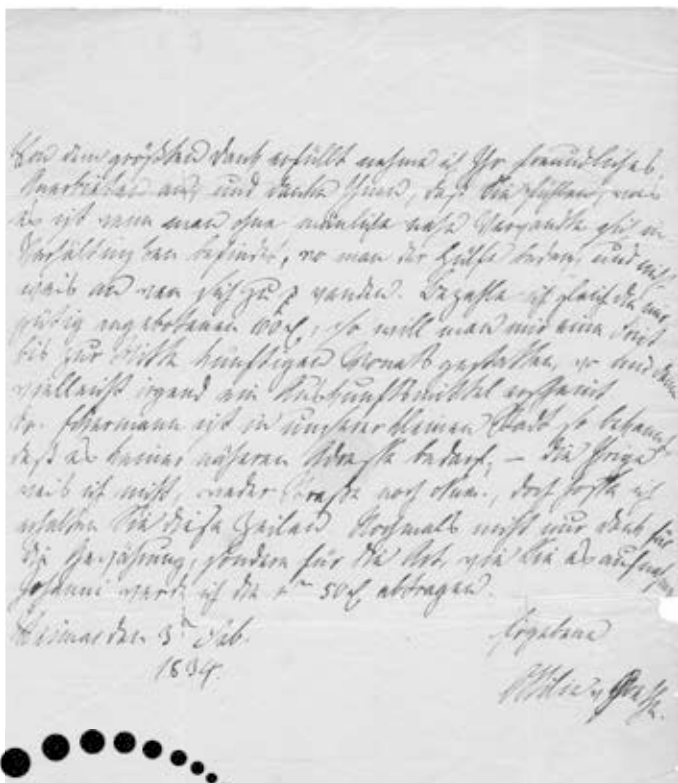 Von dem größten Dank erfüllt nehme ich Ihr freundliches
Anerbieten an, und danke Ihnen, daß Sie fühlen, was
es ist wenn man ohne männliche nahe Verwandte sich in
Verhältnißen befindet, wo man der Hülfe bedarf, und nicht
weis an wen sich zu wenden. Bezahle ich gleich die mir
gütig angebotenen 100 so will man mir eine Frist
bis zur Mitte künftigen Monats gestatten, wo und dann
vielleicht irgend ein Auskunftsmittel erscheint
Dr. ist in unserer kleinen Stadt so bekannt
daß es keiner näheren Adresse bedarf, – die Ihrige
weis ich nicht, weder Straße noch Num., doch hoffe ich
erhalten Sie diese Zeilen. Nochmals nicht nur Dank für
die Gewährung, sondern für die Art, wie Sie es aufnahmen
Johanni werde ich die 50 abtragen.
Weimar den 3
1834.
Ergebene
Ottilie v Goethe.